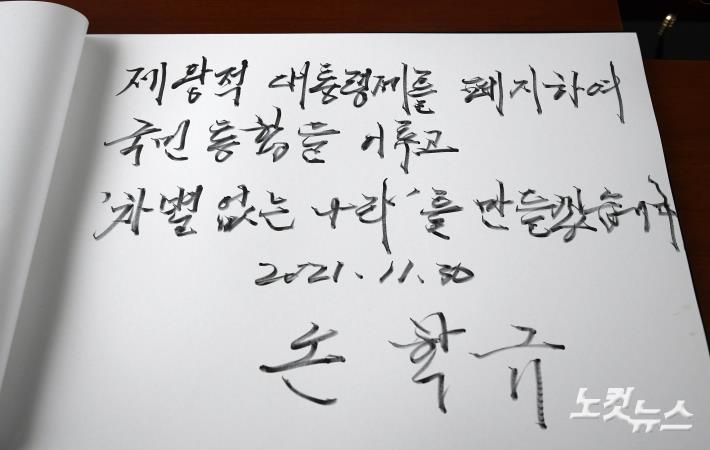 제왕적 대통령제를 폐지하여
국민 통합을 이루고
'차별 없는 나라'를 만들겠습니다
2021. 11. 30
손학규
노컷뉴스